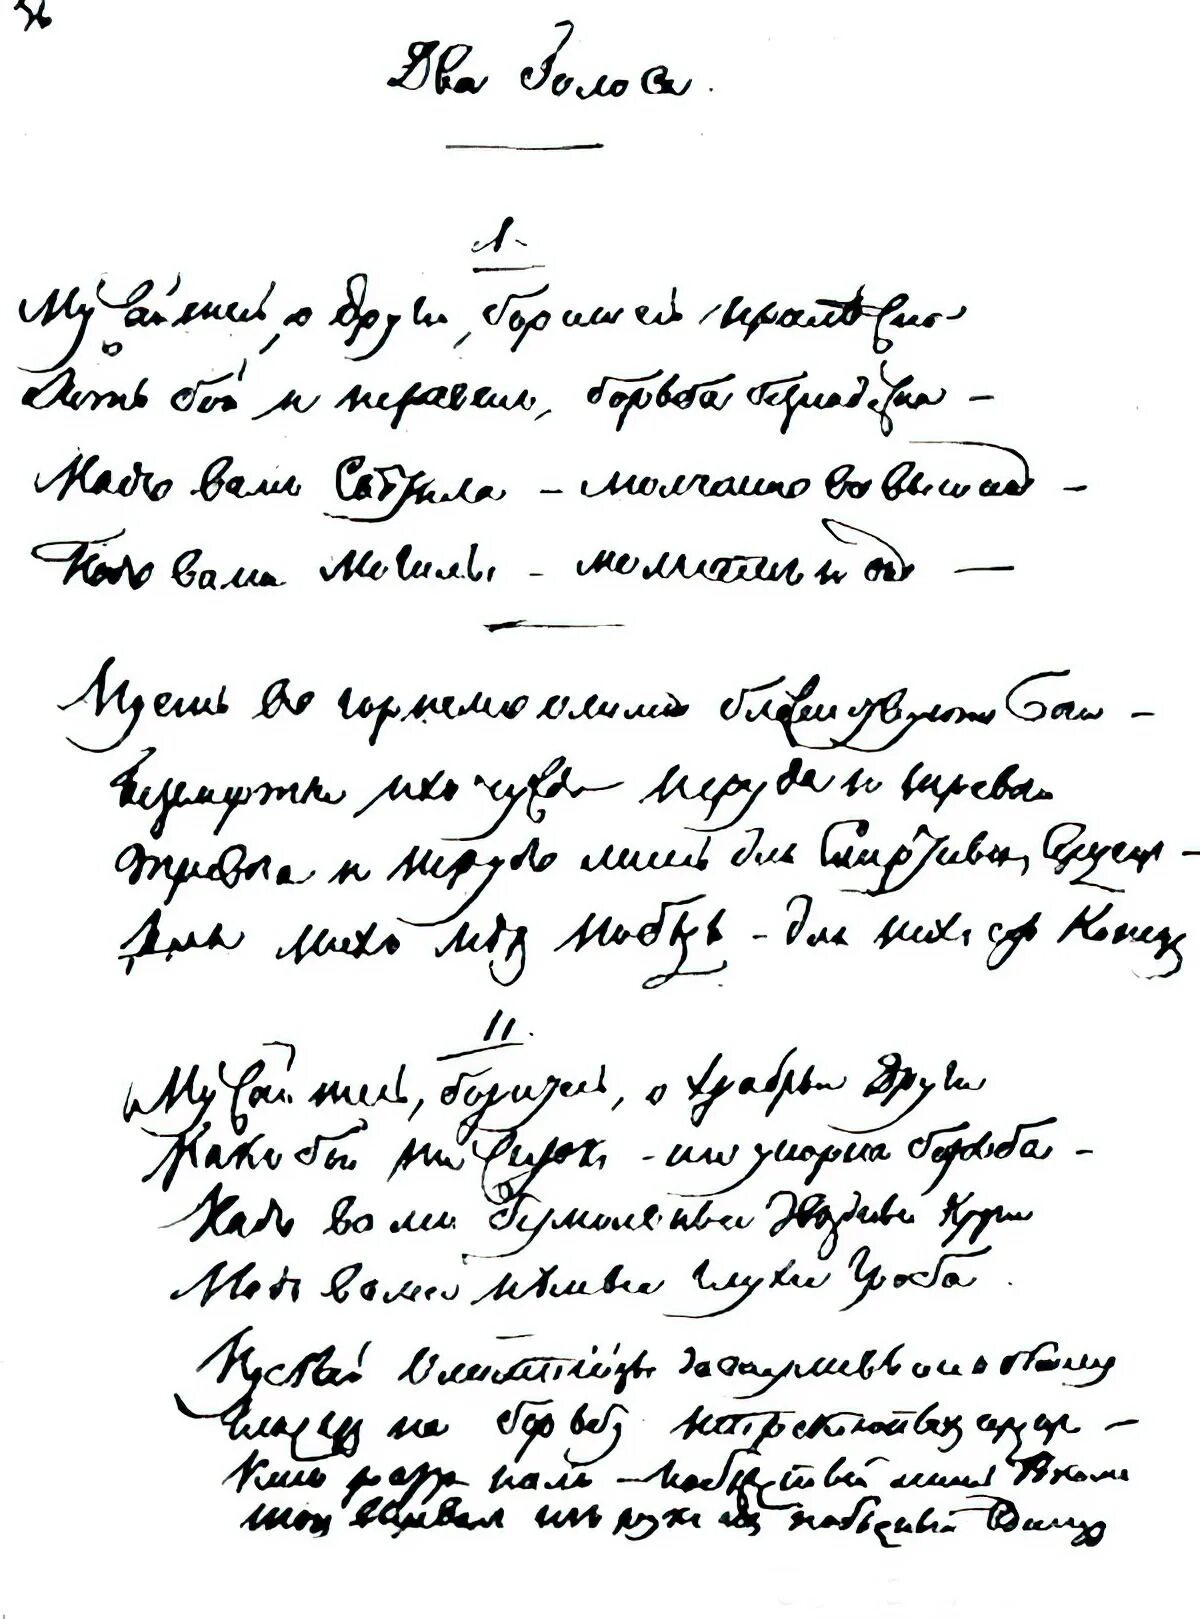 Два Голоса.
1.
Мужайтесь, о други, боритесь прилѣжно
Хоть бой и неравен, борьба безнадежна –
Надъ вами Свѣтила – молчатъ въ вышинѣ –
Подъ вами могилы – молчатъ и онѣ –
Пусть въ горнемъ Олимпѣ блаженствуютъ боги –
Безсмертье ихъ чуждо труда и тревоги
Тревога и трудъ лишь для смертныхъ сердецъ –
Для нихъ нѣтъ победы – для нихъ есть Конецъ
II.
Мужайтесь, боритесь, о храбрые Други
Какъ бой ни жестокъ – ни упорна борьба –
Надъ вами безмолвные Звѣздные Круги
Подъ вами нѣмые глухие Гроба.
Пускай Олимпійцы завистливымъ окомъ
Глядятъ на борьбу непреклонныхъ сердецъ –
Кто палъ – побѣжденный лишь Рокомъ
Тотъ вырвалъ изъ рукъ ихъ побѣдный Вѣнецъ